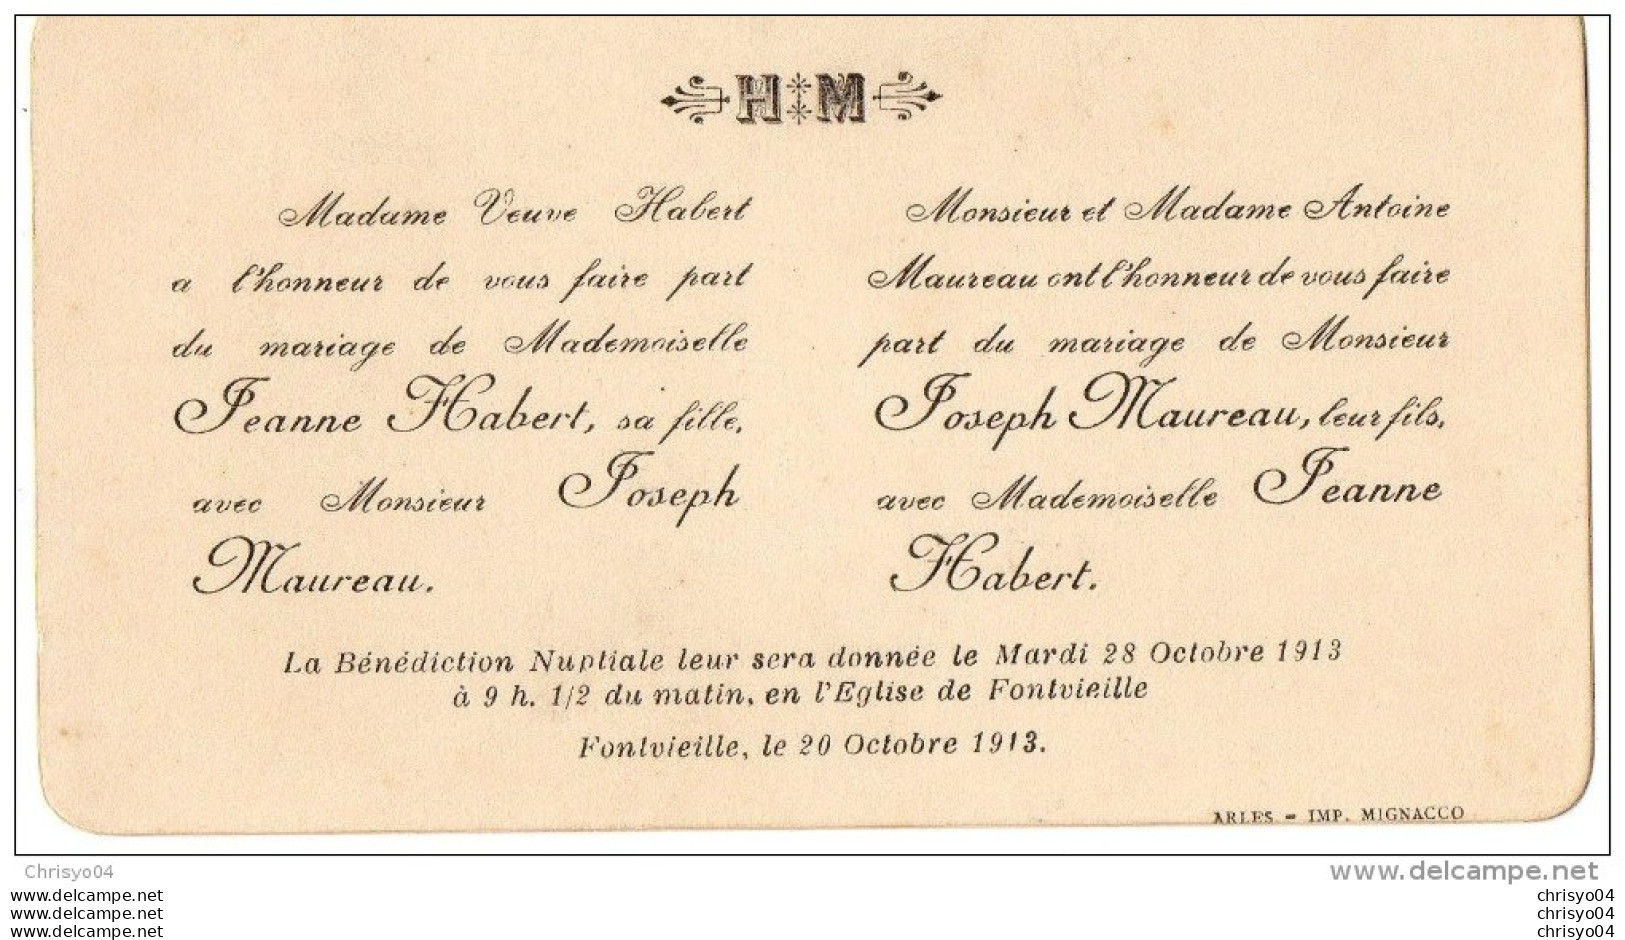 H M
Madame Veuve Habert
a l'honneur de vous faire part
du mariage de Mademoiselle
Jeanne Habert, sa fille,
avec Monsieur Joseph
Maureau.
Monsieur et Madame Antoine
Maureau ont l'honneur de vous faire
part du mariage de Monsieur
Joseph Maureau, leur fils,
avec Mademoiselle Jeanne
Habert.
La Bénédiction Nuptiale leur sera donnée le Mardi 28 Octobre 1913
à 9 h. 1/2 du matin, en l'Eglise de Fontvieille
Fontvieille, le 20 Octobre 1913.
ARLES - IMP. MIGNACCO
Chrisyo04
www.delcampe.net
chrisyo04.delcampe.net
chrisyo04.delcampe.net
chrisyo04.delcampe.net
chrisyo04
chrisyo04
chrisyo04